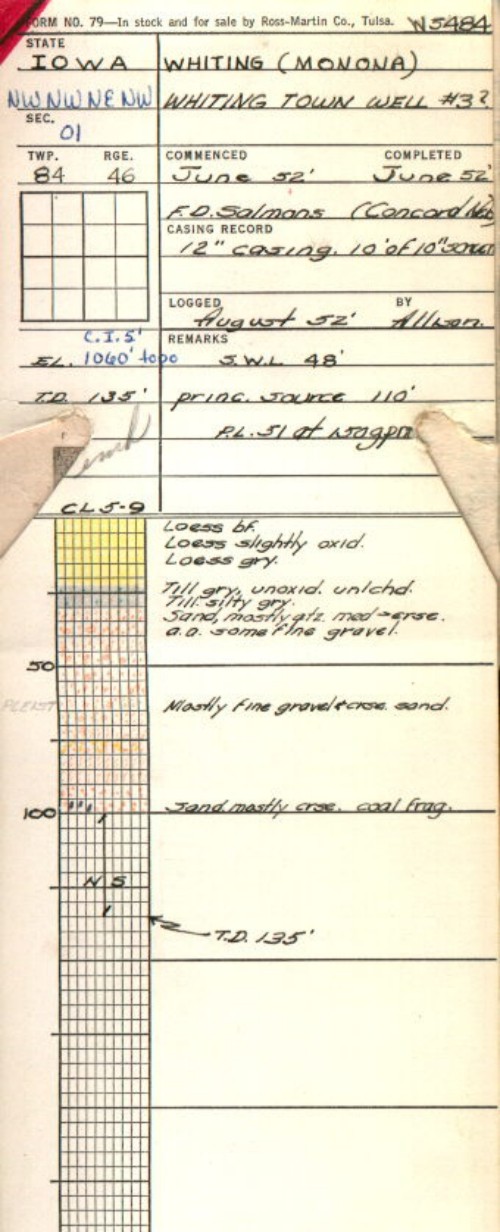 FORM NO. 79—In stock and for sale by Ross-Martin Co., Tulsa. W5484
STATE
IOWA
WHITING (MONONA)
NW NW NE NW
WHITING TOWN WELL #3?
SEC.
01
TWP. RGE.
84 46
COMMENCED COMPLETED
June 52' June 52'
F.D. Salmons (Concord
CASING RECORD
12" casing. 10' of 10" screen
LOGGED BY
August 52' Allison.
C.I. 5'
EL. 1060' topo
REMARKS
S.W.L 48'
T.D. 135'
princ. source 110'
P.L. 51 at
CL 5-9
Loess bf.
Loess slightly oxid.
Loess gry.
Till gry, unoxid. unlchd.
Till silty gry.
Sand, mostly qtz. med→crse.
a.a. some fine gravel.
50
PLEIST
Mostly fine gravel & crse. sand.
100
Sand mostly crse. coal frag.
N S
T.D. 135'